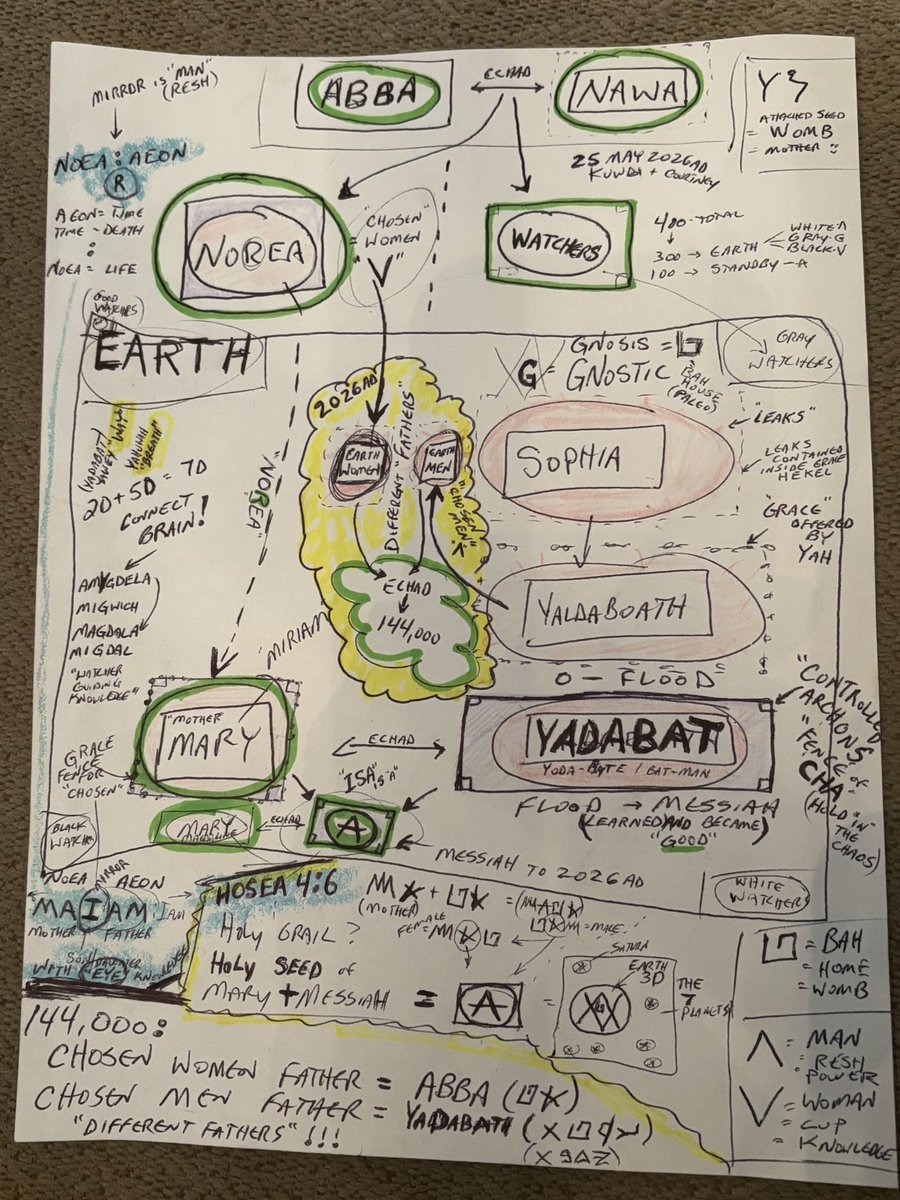 MIRROR is "MAN"
(RESH)
NOEA : AEON
R
AEON = TIME
TIME - DEATH
:
NOEA = LIFE
ABBA
ECHAD
NAWA
25 MAY 2026AD
KUWDA + COURTNEY
ATTACHED SEED
= WOMB
= MOTHER
NOREA
= "CHOSEN"
WOMEN
WATCHERS
400 - TOTAL
300 → EARTH
WHITE-A
GRAY-G
BLACK-V
100 → STANDBY - A
GOOD
WATCHERS
EARTH
GRAY
WATCHERS
G = GNOSIS =
= GNOSTIC
BAH
HOUSE
(PALEO)
2026AD
EARTH
WOMEN
"FATHERS"
DIFFERENT
EARTH
MEN
"CHOSEN
MEN"
ECHAD
144,000
SOPHIA
"LEAKS"
LEAKS
CONTAINED
INSIDE GRACE
HEKEL
"GRACE"
OFFERED
BY
YAH
YALDABOATH
O - FLOOD
YADABAT
YODA-BYTE / BAT-MAN
"CONTROLLED
ARCHONS"
"FENCE of
CHA"
(HELD "IN"
THE
CHAOS)
FLOOD → MESSIAH
(LEARNED AND BECAME)
"GOOD"
YADABAT
"YAVEY" "WAY"
YAHUHAH
"BREATH"
2D + 5D = 7D
CONNECT
BRAIN!
AMYGDELA
MIGWICH
MAGDALA
MIGDAL
"WATCHER
GUIDING
KNOWLEDGE"
"NOREA"
MIRIAM
"MOTHER"
MARY
GRACE
FENCE
FOR
"CHOSEN"
ECHAD
"ISA"
IS "A"
A
MARY
MAGDALENE
ECHAD
BLACK
WATCHERS
MESSIAH TO 2026AD
WHITE
WATCHERS
NOEA
MIRROR
AEON
MAIAM
I AM
MOTHER
FATHER
WITH
(EYE)
KNOWLEDGE
HOSEA 4:6
(MOTHER)
FEMALE
= MALE
HOLY GRAIL?
HOLY SEED of
MARY + MESSIAH = A =
SATURN
EARTH
3D
THE
7
PLANETS
= BAH
= HOME
= WOMB
Λ = MAN
= RESH
POWER
V = WOMAN
= CUP
= KNOWLEDGE
144,000:
CHOSEN WOMEN FATHER = ABBA
CHOSEN MEN FATHER = YADABAT
"DIFFERENT FATHERS" !!!